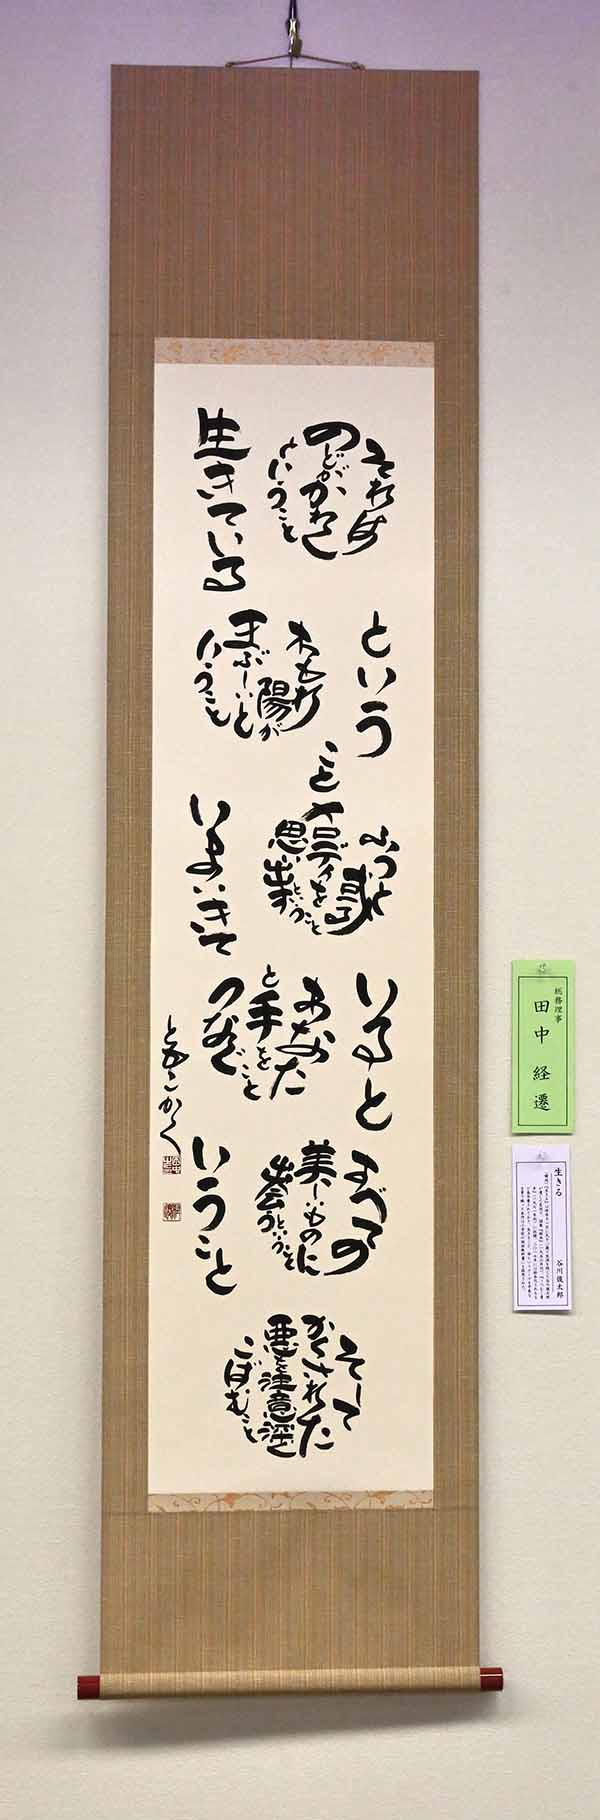 生きている
という
こと
いまいきて
いると
いうこと
それは
のどがかわく
ということ
木もれ
陽が
まぶしいと
いうこと
ふっと
或る
メロディを
思い出す
ということ
あなた
と手を
つなぐ
こと
すべての
美しいものに
出会う
ということ
そして
かくされた
悪を注意深く
こばむこと
ともこかく
総務理事
田中 経遷
生きる
谷川俊太郎